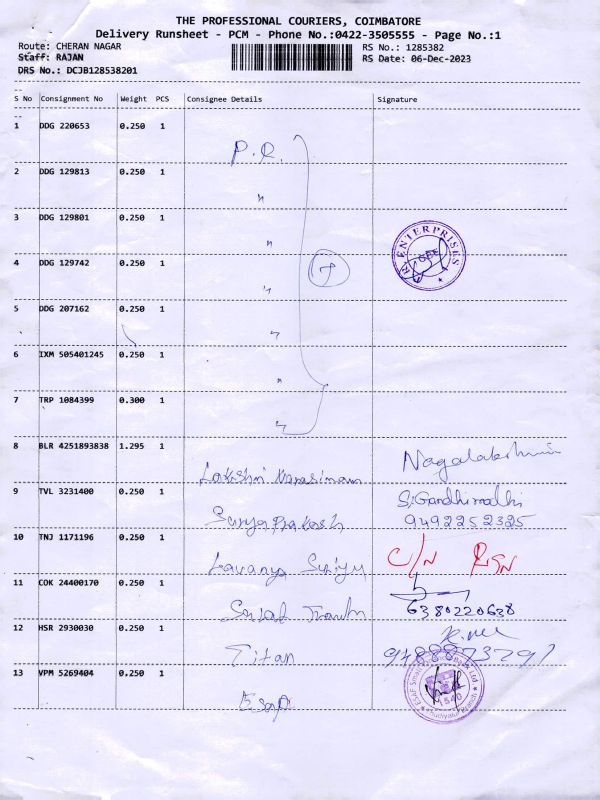 THE PROFESSIONAL COURIERS, COIMBATORE
Delivery Runsheet - PCM - Phone No.:0422-3505555 - Page No.:1
Route: CHERAN NAGAR RS No.: 1285382
Staff: RAJAN RS Date: 06-Dec-2023
DRS No.: DCJB128538201
S No Consignment No Weight PCS Consignee Details Signature
1 DDG 220653 0.250 1
P.R.
2 DDG 129813 0.250 1
"
3 DDG 129801 0.250 1
"
ENTERPRISES
4 DDG 129742 0.250 1
7
"
5 DDG 207162 0.250 1
"
6 IXM 505401245 0.250 1
"
7 TRP 1084399 0.300 1
"
8 BLR 4251893838 1.295 1
Nagalakshmi
9 TVL 3231400 0.250 1
S.Gandhimathi
Surya Prakash 9492252325
10 TNJ 1171196 0.250 1
C/N RSN
Lavanya
11 COK 24400170 0.250 1
6380220638
12 HSR 2930030 0.250 1
Titan
13 VPM 5269404 0.250 1
ESAF Small Finance Bank Ltd